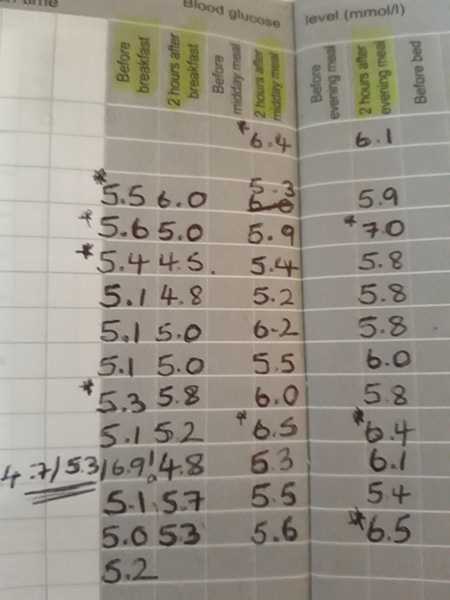 time
Blood glucose level (mmol/l)
Before breakfast 2 hours after breakfast Before midday meal 2 hours after midday meal Before evening meal 2 hours after evening meal Before bed
*6.4 6.1
*5.5 6.0 5.3 5.9
*5.6 5.0 5.9 *7.0
*5.4 4.5. 5.4 5.8
5.1 4.8 5.2 5.8
5.1 5.0 6-2 5.8
5.1 5.0 5.5 6.0
*5.3 5.8 6.0 5.8
5.1 5.2 *6.5 *6.4
4.7/5.3/6.9! 4.8 5.3 6.1
5.1 5.7 5.5 5.4
5.0 53 5.6 *6.5
5.2